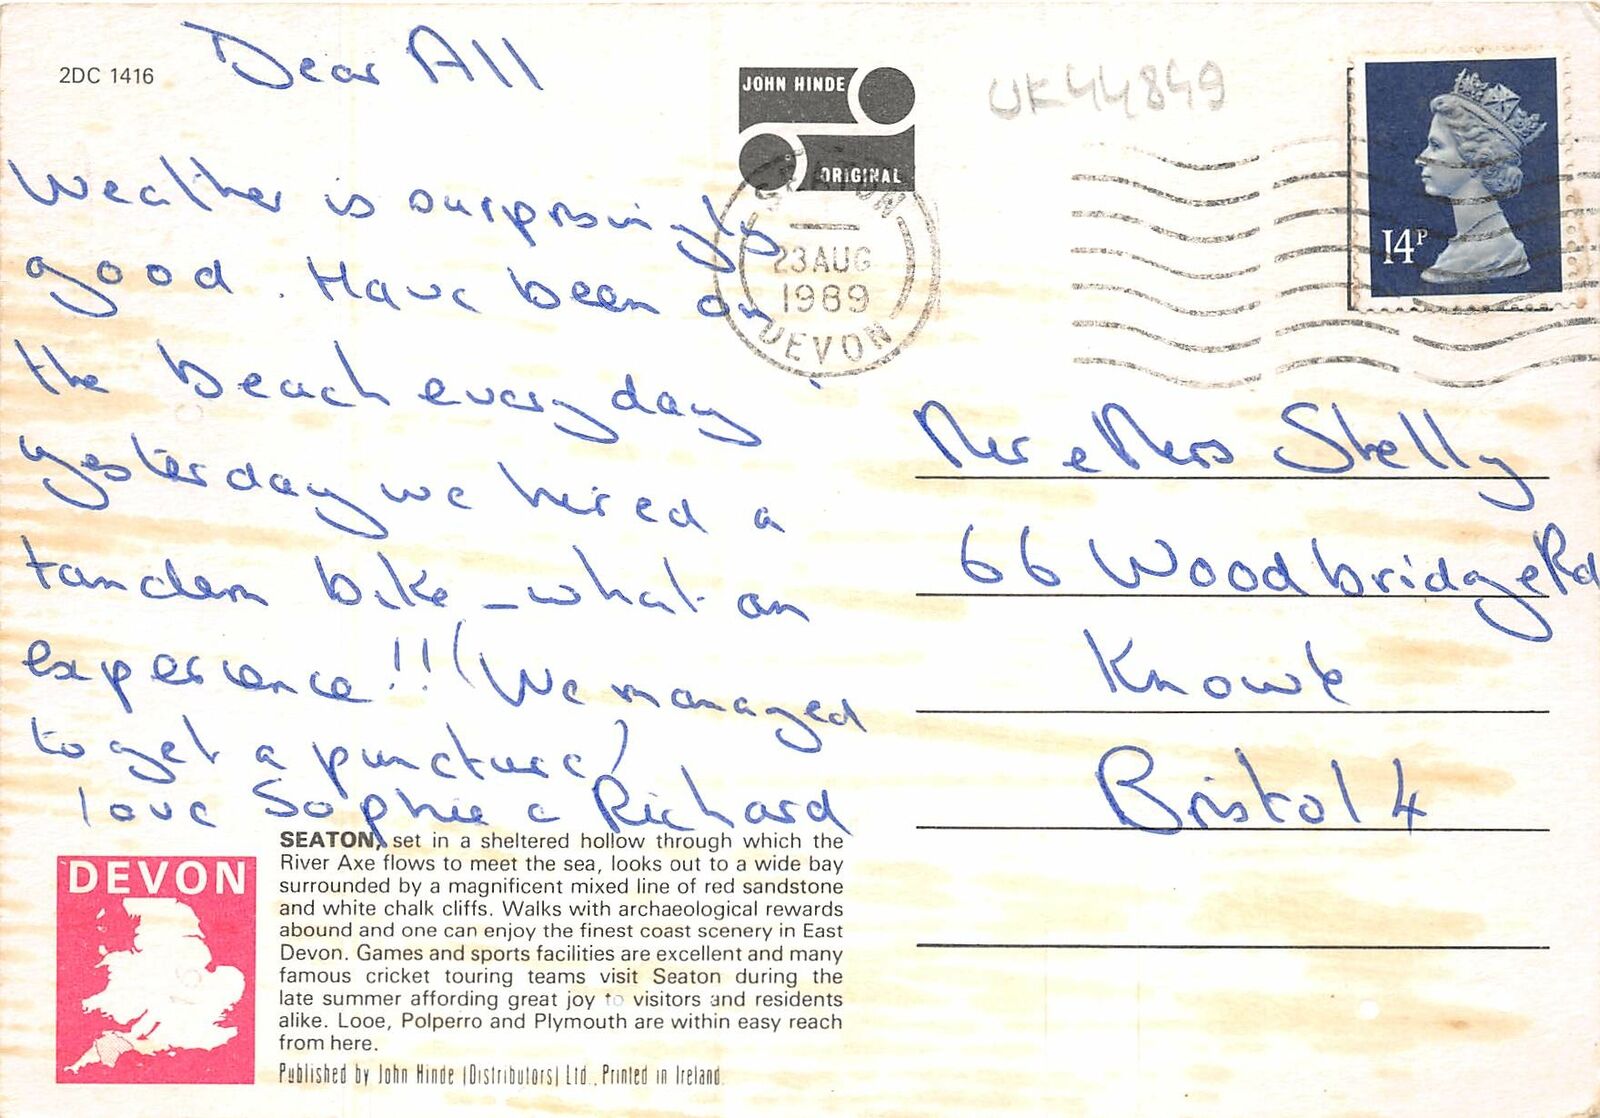 2DC 1416
Dear All
Weather is surprisingly
good. Have been on
the beach every day
yesterday we hired a
tandem bike – what an
experience!! (We managed
to get a puncture)
love Sophie & Richard
JOHN HINDE
ORIGINAL
UK44849
SEATON
23 AUG
1989
DEVON
14P
Mr & Mrs Shelly
66 Woodbridge Rd
Knowle
Bristol 4
DEVON
SEATON, set in a sheltered hollow through which the
River Axe flows to meet the sea, looks out to a wide bay
surrounded by a magnificent mixed line of red sandstone
and white chalk cliffs. Walks with archaeological rewards
abound and one can enjoy the finest coast scenery in East
Devon. Games and sports facilities are excellent and many
famous cricket touring teams visit Seaton during the
late summer affording great joy to visitors and residents
alike. Looe, Polperro and Plymouth are within easy reach
from here.
Published by John Hinde (Distributors) Ltd., Printed in Ireland.